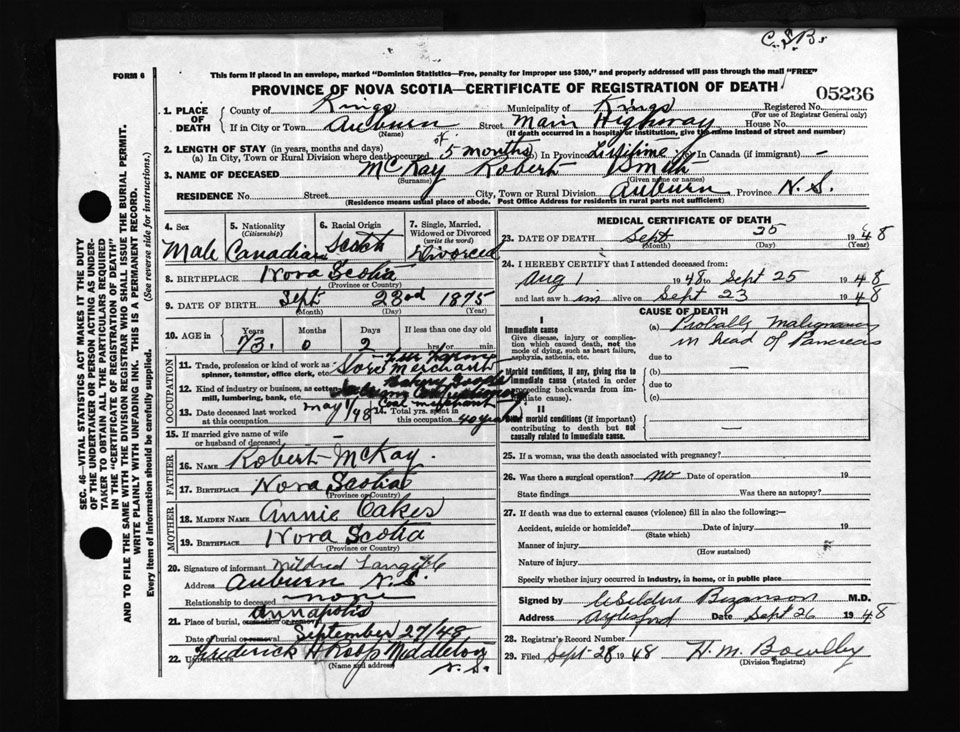 C.S.B.
FORM 6
This form if placed in an envelope, marked "Dominion Statistics—Free, penalty for improper use $300," and properly addressed will pass through the mail "FREE"
PROVINCE OF NOVA SCOTIA—CERTIFICATE OF REGISTRATION OF DEATH
05236
1. PLACE OF DEATH
County of Kings Municipality of Kings Registered No.
(For use of Registrar General only)
If in City or Town Auburn Street Main Highway House No.
(Name) (If death occurred in a hospital or institution, give the name instead of street and number)
2. LENGTH OF STAY (in years, months and days)
(a) In City, Town or Rural Division where death occurred 5 months (b) In Province Lifetime (c) In Canada (if immigrant) —
3. NAME OF DECEASED McKay Robert
(Surname) (Given name or names)
RESIDENCE No. Street City, Town or Rural Division Auburn Province N.S.
(Residence means usual place of abode. Post Office Address for residents in rural parts not sufficient)
4. Sex Male
5. Nationality (Citizenship) Canadian
6. Racial Origin Scotch
7. Single, Married, Widowed or Divorced (write the word) Divorced
8. BIRTHPLACE Nova Scotia
(Province or Country)
9. DATE OF BIRTH Sept 23rd 1875
(Month) (Day) (Year)
10. AGE in Years Months Days If less than one day old
73 0 2 hrs. or min.
OCCUPATION
11. Trade, profession or kind of work as spinner, teamster, office clerk, etc. Store Merchant
12. Kind of industry or business, as cotton mill, lumbering, bank, etc.
13. Date deceased last worked at this occupation May/48
14. Total yrs. spent in this occupation 40 years
15. If married give name of wife or husband of deceased —
FATHER
16. NAME Robert McKay.
17. BIRTHPLACE Nova Scotia
(Province or Country)
MOTHER
18. MAIDEN NAME Annie Oakes
19. BIRTHPLACE Nova Scotia
(Province or Country)
20. Signature of informant Mildred
Address Auburn N.S.
Relationship to deceased none
21. Place of burial, cremation or removal Annapolis
Date of burial or removal September 27/48
22. UNDERTAKER Frederick H Roop Middleton
(Name and address) N.S.
MEDICAL CERTIFICATE OF DEATH
23. DATE OF DEATH Sept 25 1948
(Month) (Day) (Year)
24. I HEREBY CERTIFY that I attended deceased from:
Aug 1 1948 to Sept 25 1948
and last saw him alive on Sept 23 1948
CAUSE OF DEATH
I
Immediate cause
Give disease, injury or complication which caused death, not the mode of dying, such as heart failure, asphyxia, asthenia, etc.
(a) Probably Malignancy in head of Pancreas
due to
Morbid conditions, if any, giving rise to immediate cause (stated in order proceeding backwards from immediate cause).
(b) —
due to
(c)
II
Other morbid conditions (if important) contributing to death but not causally related to immediate cause.
—
25. If a woman, was the death associated with pregnancy?
26. Was there a surgical operation? no Date of operation 19
State findings Was there an autopsy?
27. If death was due to external causes (violence) fill in also the following:—
Accident, suicide or homicide? Date of injury 19
(State which)
Manner of injury
(How sustained)
Nature of injury
Specify whether injury occurred in industry, in home, or in public place
Signed by Bezanson M.D.
Address Aylesford Date Sept 26 1948
28. Registrar's Record Number
29. Filed Sept-28 1948 H. M. Bowlby
(Division Registrar)
SEC. 46—VITAL STATISTICS ACT MAKES IT THE DUTY
OF THE UNDERTAKER OR PERSON ACTING AS UNDERTAKER TO OBTAIN ALL THE PARTICULARS REQUIRED
IN THE "CERTIFICATE OF REGISTRATION OF DEATH"
AND TO FILE THE SAME WITH THE DIVISION REGISTRAR WHO SHALL ISSUE THE BURIAL PERMIT.
WRITE PLAINLY WITH UNFADING INK. THIS IS A PERMANENT RECORD.
Every item of information should be carefully supplied. (See reverse side for instructions.)